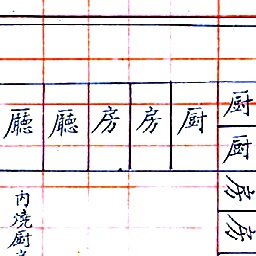 廳 廳 房 房 厨
厨
厨
房
房
内燒厨